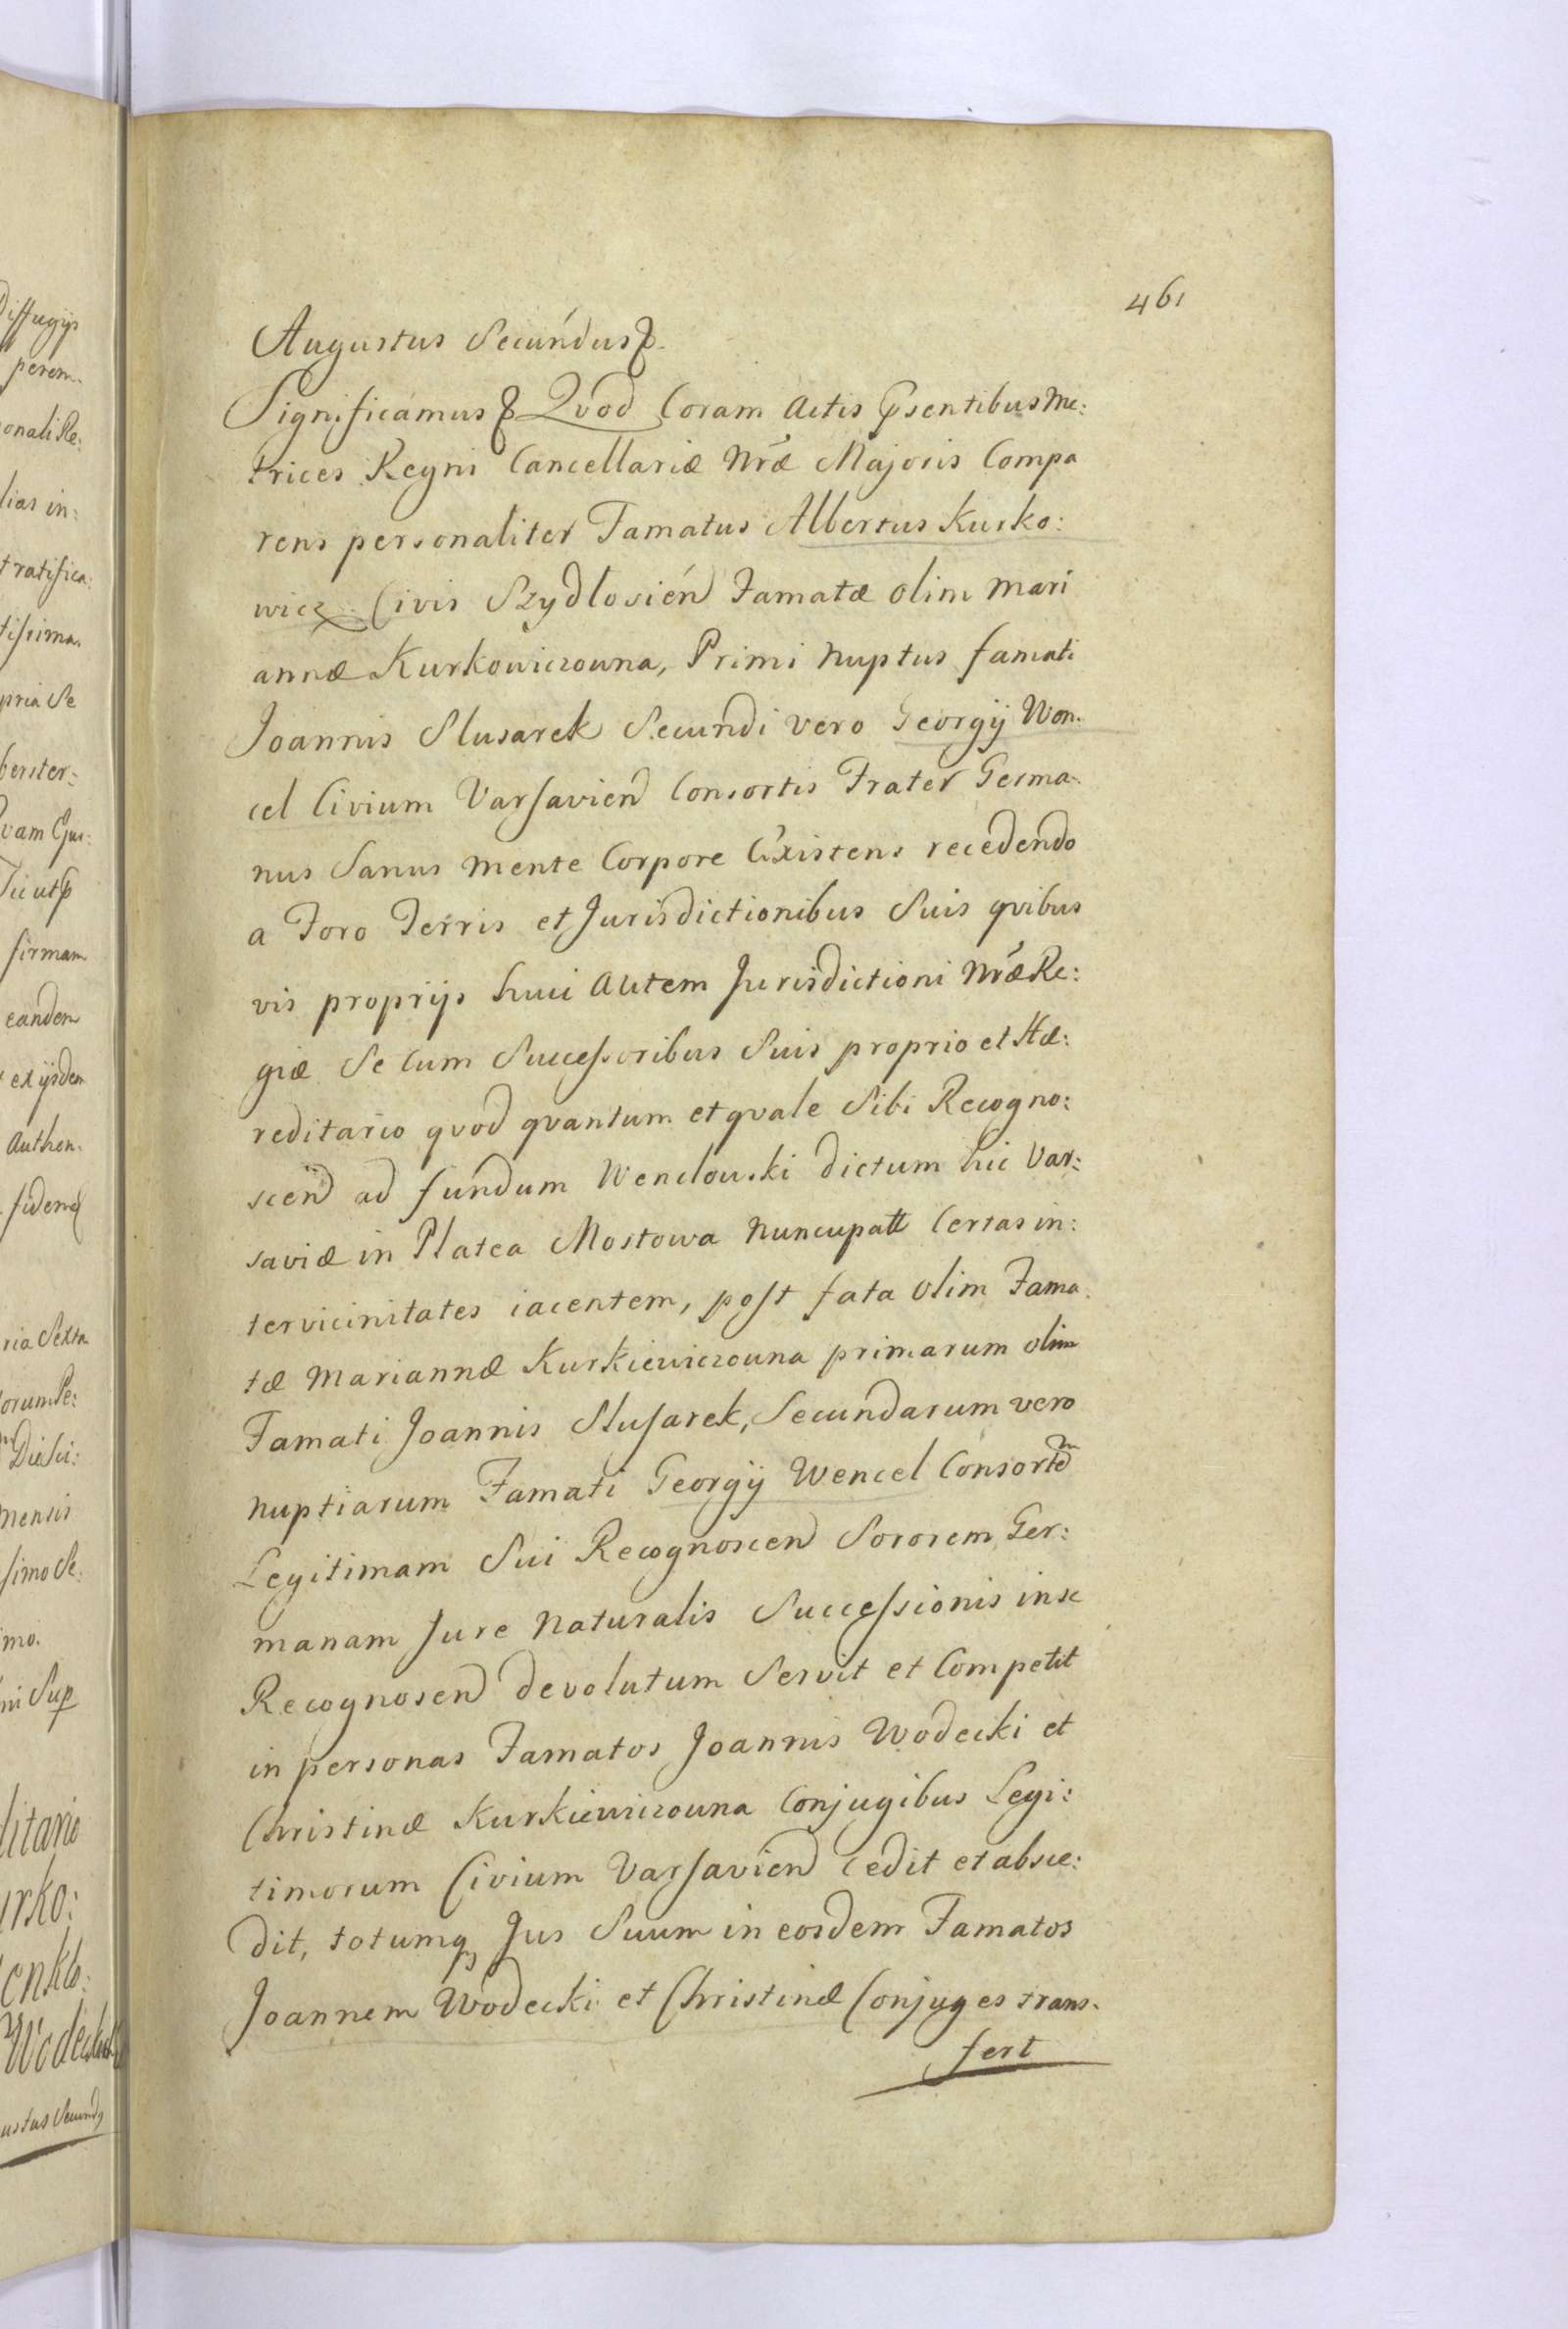 461
Augustus Secundus
Significamus Qvod Coram Actis Psentibus Me:
trices Regni Cancellariæ Nræ Majoris Compa
rens personaliter Famatus Albertus Kurko:
wicz Civis Szydlovień Famatæ olim Mari
annæ Kurkowiczowna, Primi nuptus famati
Joannis Slusarek Secundi vero Georgij Won.
cel Civium Varsavien Consortis Frater Germa.
nus Sanus mente Corpore Existens recedendo
a Foro Terris et Jurisdictionibus Suis qvibus
vis proprijs huic Autem Jurisdictioni Nræ Re:
giæ Se Cum Successoribus Suis proprio et Hæ:
reditario qvod qvantum et qvale Sibi Recogno:
scen ad fundum Wenclowski dictum hic Var:
saviæ in Platea Mostowa nuncupatt Certas in:
tervicinitates iacentem, post fata olim Fama.
tæ Mariannæ Kurkiewiczowna primarum olim
Famati Joannis Slusarek, Secundarum vero
nuptiarum Famati Georgij Wencel Consortem
Legitimam Sui Recognoscen Sororem Ger:
manam Jure Naturalis Successionis in se
Recognosen devolutum Servit et Competit
in personas Famatos Joannis Wodecki et
Christinæ Kurkiewiczowna Conjugibus Legi:
timorum Civium Varsavien Cedit et absce:
dit, totumq Jus Suum in eosdem Famatos
Joannem Wodecki et Christinæ Conjuges trans.
fert
Diffugijs
perem.
onali Re:
lias in:
tratifica:
tissima.
pria Se
berster:
vam Ejus:
firmam
eandem
ex ijsdem
Authen.
ria Sexta
orum Pe:
mensis
simo Se:
imo.
ni Sup
litario
urko:
enklo:
ustus Secund